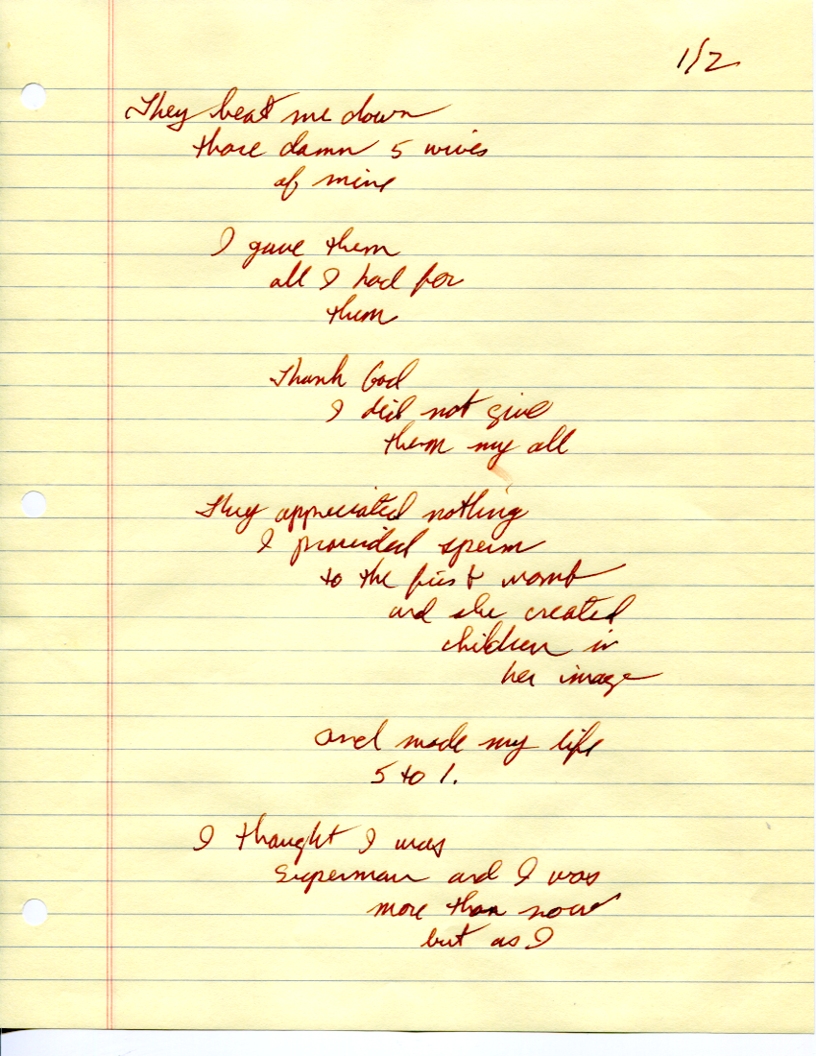 1/2
They beat me down
those damn 5 wives
of mine
I gave them
all I had for
them
Thank God
I did not give
them my all
They appreciated nothing
I provided sperm
to the first womb
and she created
children in
her image
and made my life
5 to 1.
I thought I was
Superman and I was
more than now
but as I